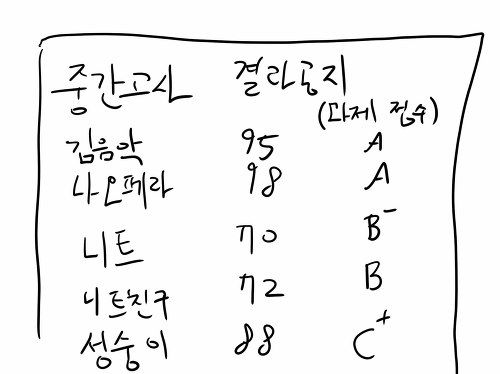 중간고사 결과공지
(과제 점수)
김음악 95 A
나오페라 98 A
니트 70 B-
니트친구 72 B
성숭이 88 C+